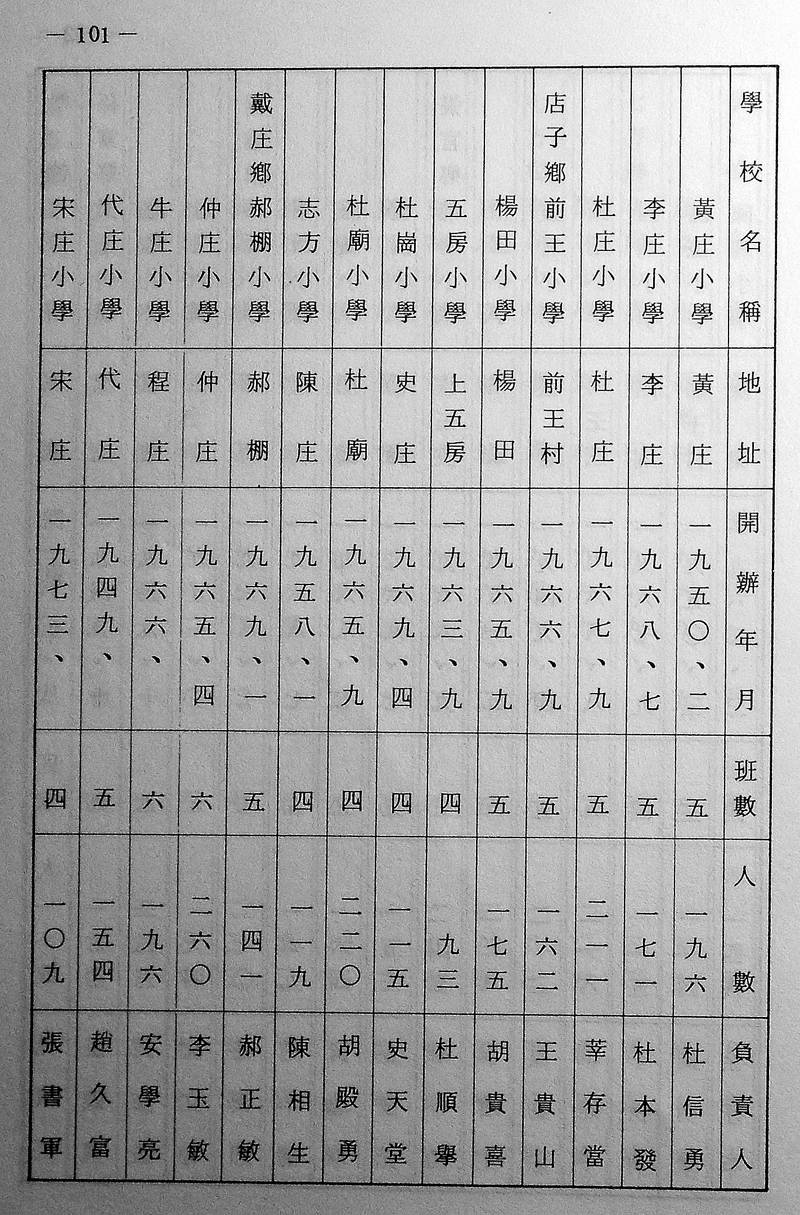 — 101 —
學校名稱 地址 開辦年月 班數 人數 負責人
黃庄小學 黃庄 一九五〇、二 五 一九六 杜信勇
李庄小學 李庄 一九六八、七 五 一七一 杜本發
杜庄小學 杜庄 一九六七、九 五 二一一 莘存當
店子鄉前王小學 前王村 一九六六、九 五 一六二 王貴山
楊田小學 楊田 一九六五、九 五 一七五 胡貴喜
五房小學 上五房 一九六三、九 四 九三 杜順舉
杜崗小學 史庄 一九六九、四 四 一一五 史天堂
杜廟小學 杜廟 一九六五、九 四 二二〇 胡殿勇
志方小學 陳庄 一九五八、一 四 一一九 陳相生
戴庄鄉郝棚小學 郝棚 一九六九、一 五 一四一 郝正敏
仲庄小學 仲庄 一九六五、四 六 二六〇 李玉敏
牛庄小學 程庄 一九六六、 六 一九六 安學亮
代庄小學 代庄 一九四九、 五 一五四 趙久富
宋庄小學 宋庄 一九七三、 四 一〇九 張書軍